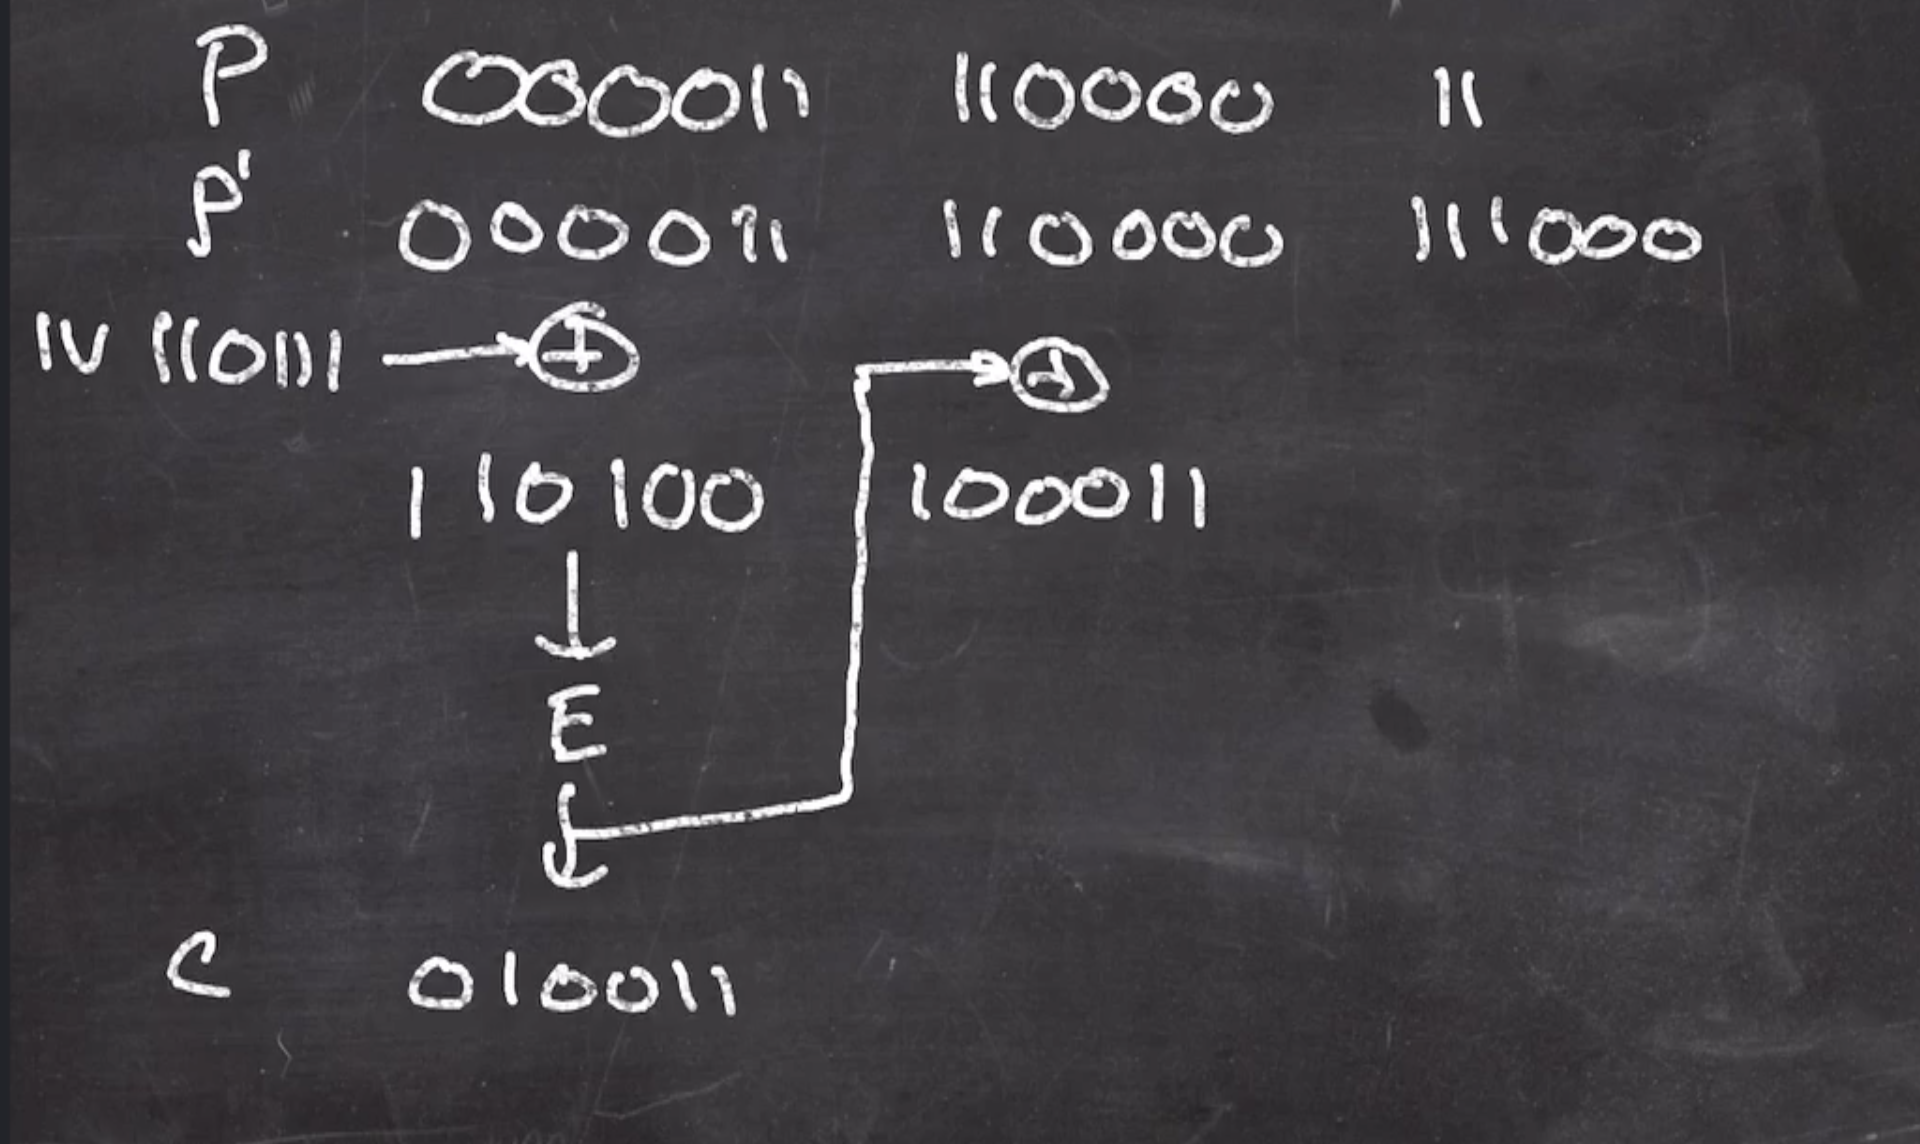 P 000011 110000 11
P' 000011 110000 111000
IV 110111 → ⊕ ⊕
110100 100011
E
C 010011